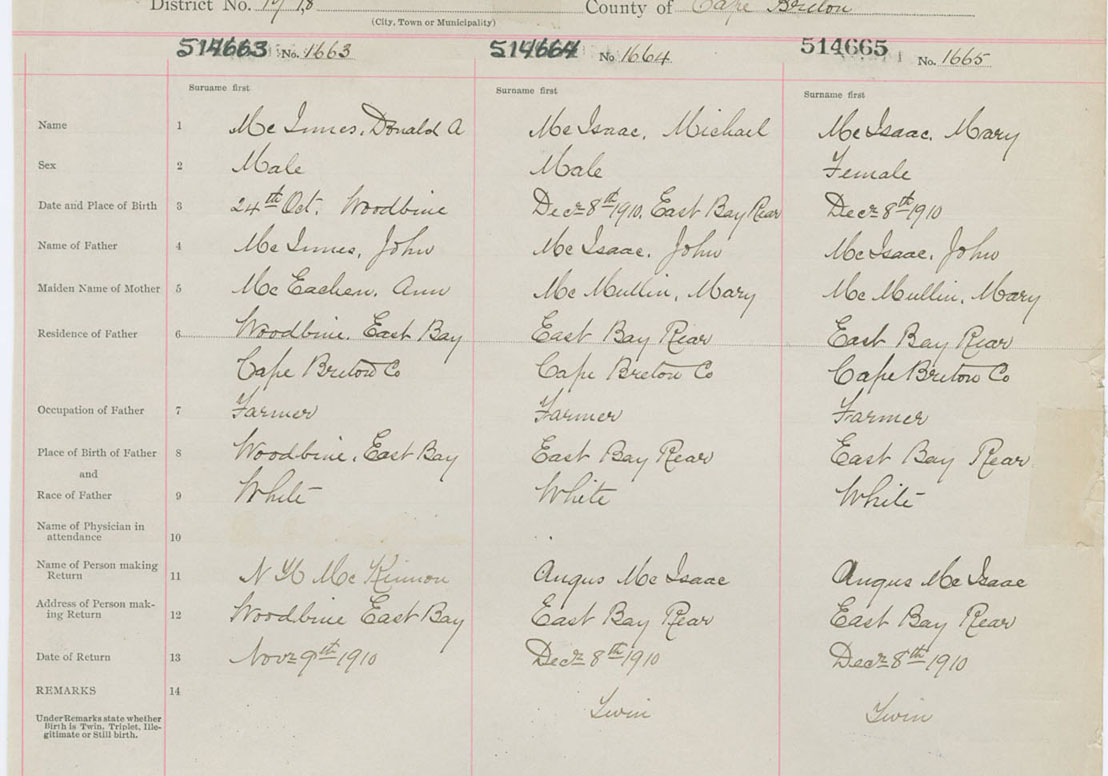 District No. County of Cape Breton
(City, Town or Municipality)
514663 No. 1663 514664 No 1664 514665 No. 1665
Surname first Surname first Surname first
Name 1 Mc Innes, Donald A Mc Isaac, Michael Mc Isaac, Mary
Sex 2 Male Male Female
Date and Place of Birth 3 24th Oct. Woodbine Decr 8th 1910, East Bay Rear Decr 8th 1910
Name of Father 4 Mc Innes, John Mc Isaac, John Mc Isaac, John
Maiden Name of Mother 5 Mc Eachen, Ann Mc Mullin, Mary Mc Mullin, Mary
Residence of Father 6 Woodbine, East Bay East Bay Rear East Bay Rear
Cape Breton Co Cape Breton Co Cape Breton Co
Occupation of Father 7 Farmer Farmer Farmer
Place of Birth of Father 8 Woodbine, East Bay East Bay Rear East Bay Rear
and
Race of Father 9 White White White
Name of Physician in
attendance 10
Name of Person making
Return 11 Mc Kinnon Angus Mc Isaac Angus Mc Isaac
Address of Person mak-
ing Return 12 Woodbine East Bay East Bay Rear East Bay Rear
Date of Return 13 Novr 9th 1910 Decr 8th 1910 Decr 8th 1910
REMARKS 14
Under Remarks state whether Twin Twin
Birth is Twin, Triplet, Ille-
gitimate or Still birth.